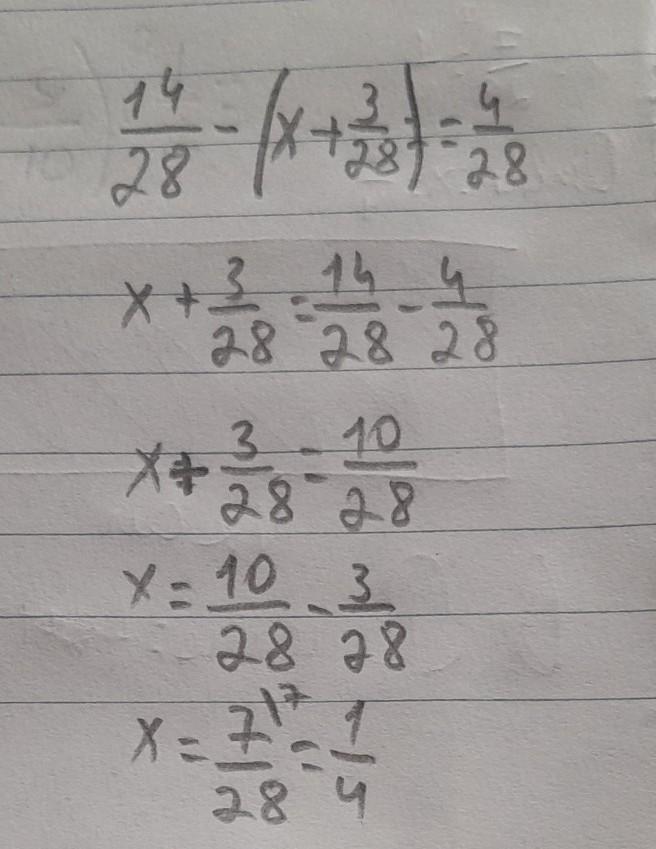 14/28 - (x + 3/28) = 4/28
x + 3/28 = 14/28 - 4/28
x + 3/28 = 10/28
x = 10/28 - 3/28
x = 7\7/28 = 1/4